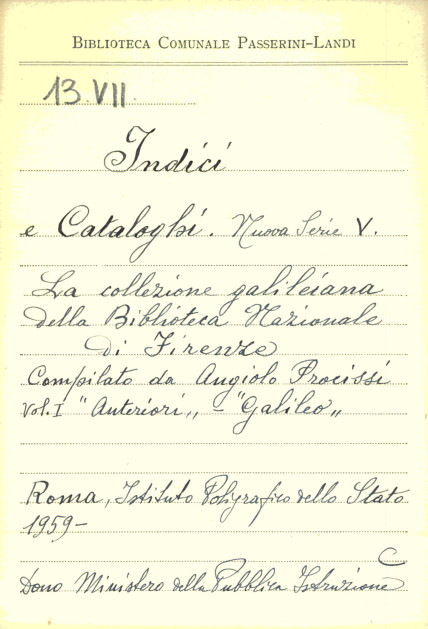 BIBLIOTECA COMUNALE PASSERINI-LANDI
13.VII.
Indici
e Cataloghi. Nuova Serie V.
La collezione galileiana
della Biblioteca Nazionale
di Firenze
Compilato da Angiolo Procissi
Vol. I "Anteriori„ - "Galileo„
Roma, Istituto Poligrafico dello Stato
1959-
C
Dono Ministero della Pubblica Istruzione